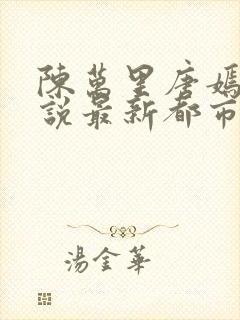 陳萬里唐嫣
說最新都市
湯金華